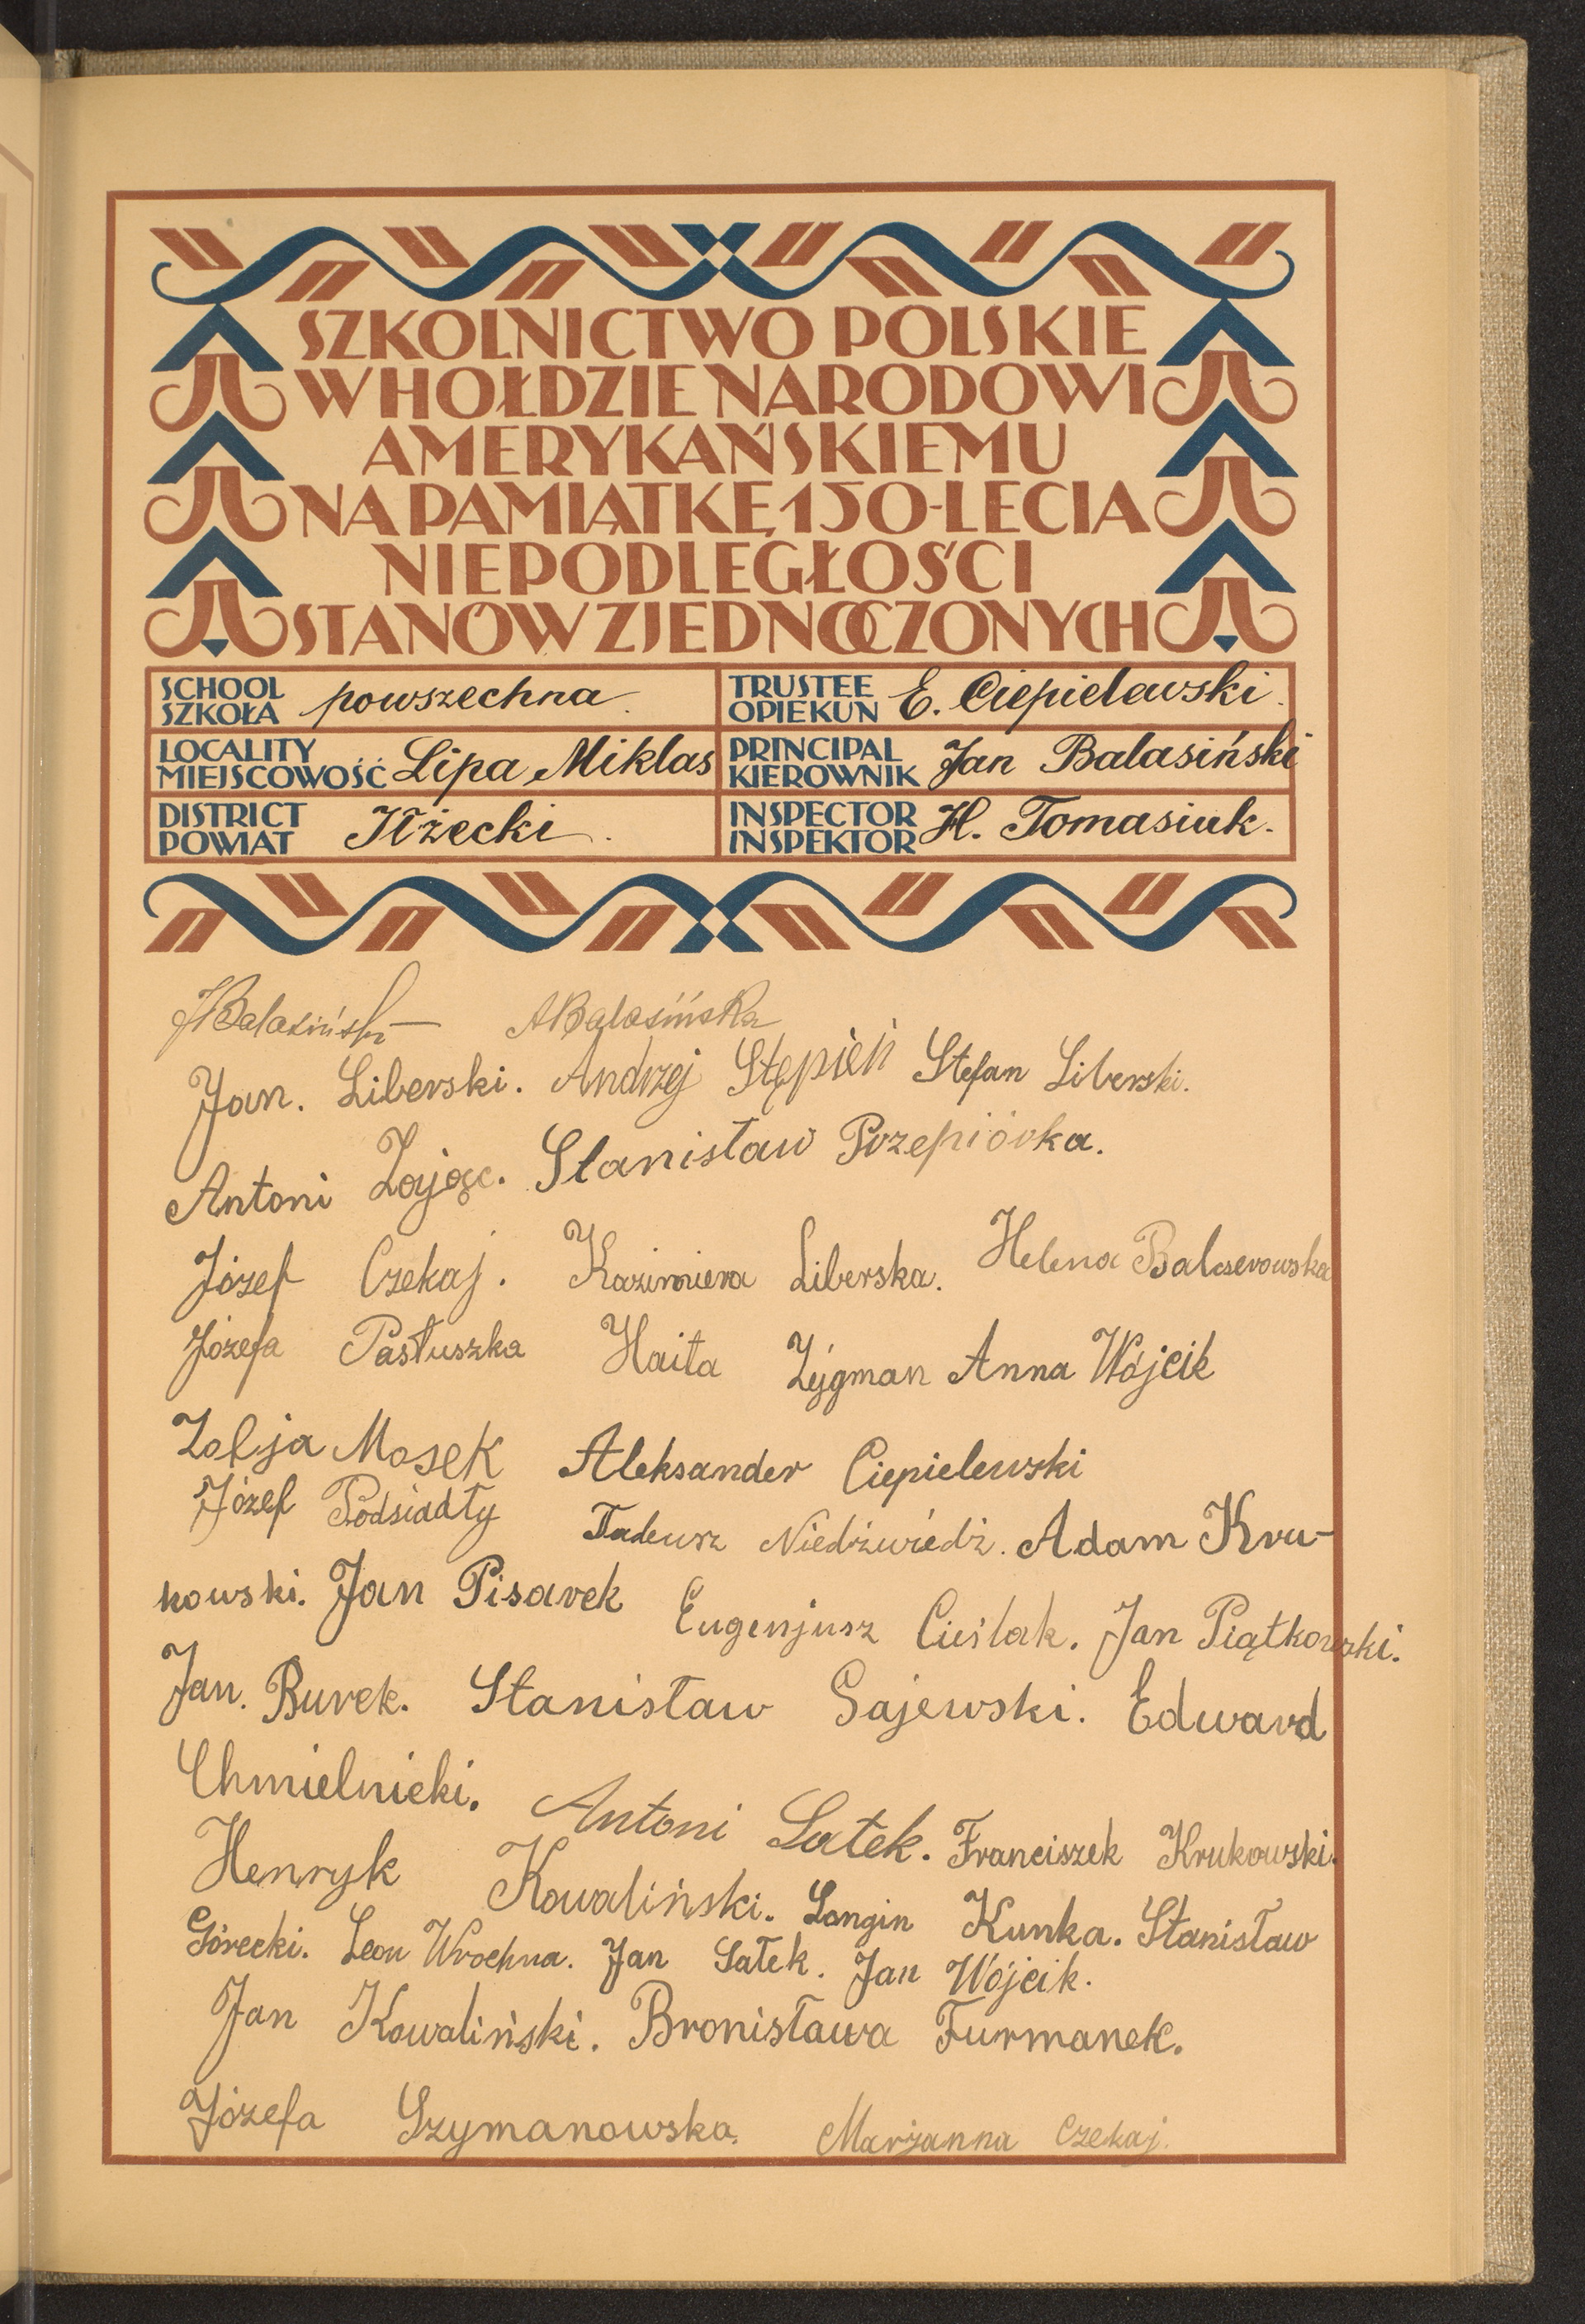 SZKOLNICTWO POLSKIE
W HOŁDZIE NARODOWI
AMERYKAŃSKIEMU
NA PAMIĄTKĘ 150-LECIA
NIEPODLEGŁOŚCI
STANÓW ZJEDNOCZONYCH
SCHOOL SZKOŁA powszechna.
TRUSTEE OPIEKUN E. Ciepielewski.
LOCALITY MIEJSCOWOŚĆ Lipa Miklas
PRINCIPAL KIEROWNIK Jan Balasiński
DISTRICT POWIAT Iłżecki.
INSPECTOR INSPEKTOR H. Tomasiuk.
JBalasiński ABalasińska
Jan. Liberski. Andrzej Stępień Stefan Liberski.
Antoni Zając. Stanisław Przepiórka.
Józef Czekaj. Kazimiera Liberska. Helena Balcerowska
Józefa Pastuszka Haita Zygman Anna Wójcik
Zofja Mosek Aleksander Ciepielewski
Józef Podsiadły Tadeusz Niedźwiedź. Adam Kru-
kowski. Jan Pisarek Eugenjusz Cieślak. Jan Piątkowski.
Jan. Burek. Stanisław Gajewski. Edward
Chmielnicki. Antoni Satek. Franciszek Krukowski.
Henryk Kowaliński. Longin Kunka. Stanisław
Górecki. Leon Wrochna. Jan Satek. Jan Wójcik.
Jan Kowaliński. Bronisława Furmanek.
Józefa Szymanowska. Marjanna Czekaj.